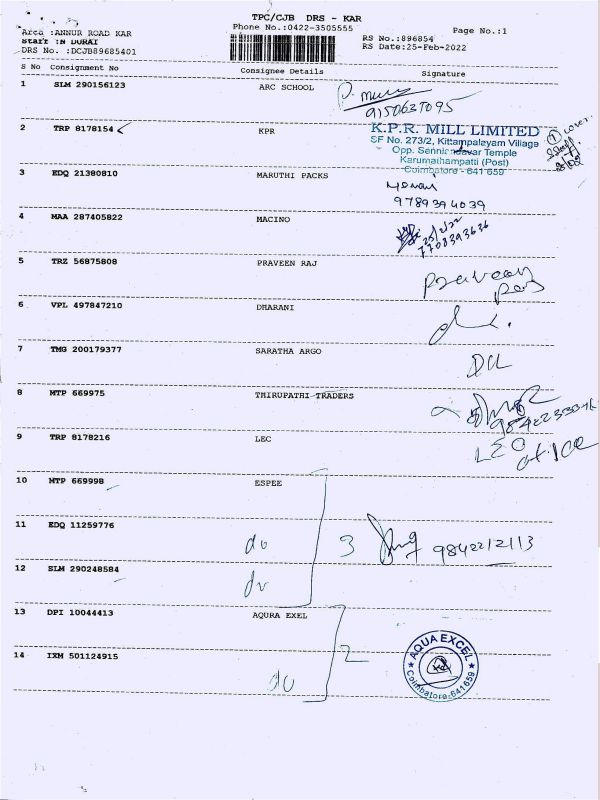 TPC/CJB DRS - KAR
Area :ANNUR ROAD KAR
Phone No.:0422-3505555
Page No.:1
Staff :N DURAI
RS No.:896854
DRS No. :DCJB89685401
RS Date:25-Feb-2022
S No Consignment No Consignee Details Signature
1 SLM 290156123 ARC SCHOOL
9150637095
2 TRP 8178154 KPR
K.P.R. MILL LIMITED
SF No. 273/2, Kittampalayam Village
Opp. Sennirandavar Temple
Karumathampatti (Post)
Coimbatore - 641 659
3 EDQ 21380810 MARUTHI PACKS
9789394039
4 MAA 287405822 MACINO
7708393636
5 TRZ 56875808 PRAVEEN RAJ
Praveen
Raj
6 VPL 497847210 DHARANI
7 TMG 200179377 SARATHA ARGO
8 MTP 669975 THIRUPATHI TRADERS
9 TRP 8178216 LEC
10 MTP 669998 ESPEE
11 EDQ 11259776 do 3 9842212113
12 SLM 290248584 do
13 DPI 10044413 AQURA EXEL
14 IXM 501124915 do 2
AQUA EXCEL
Coimbatore-641 659